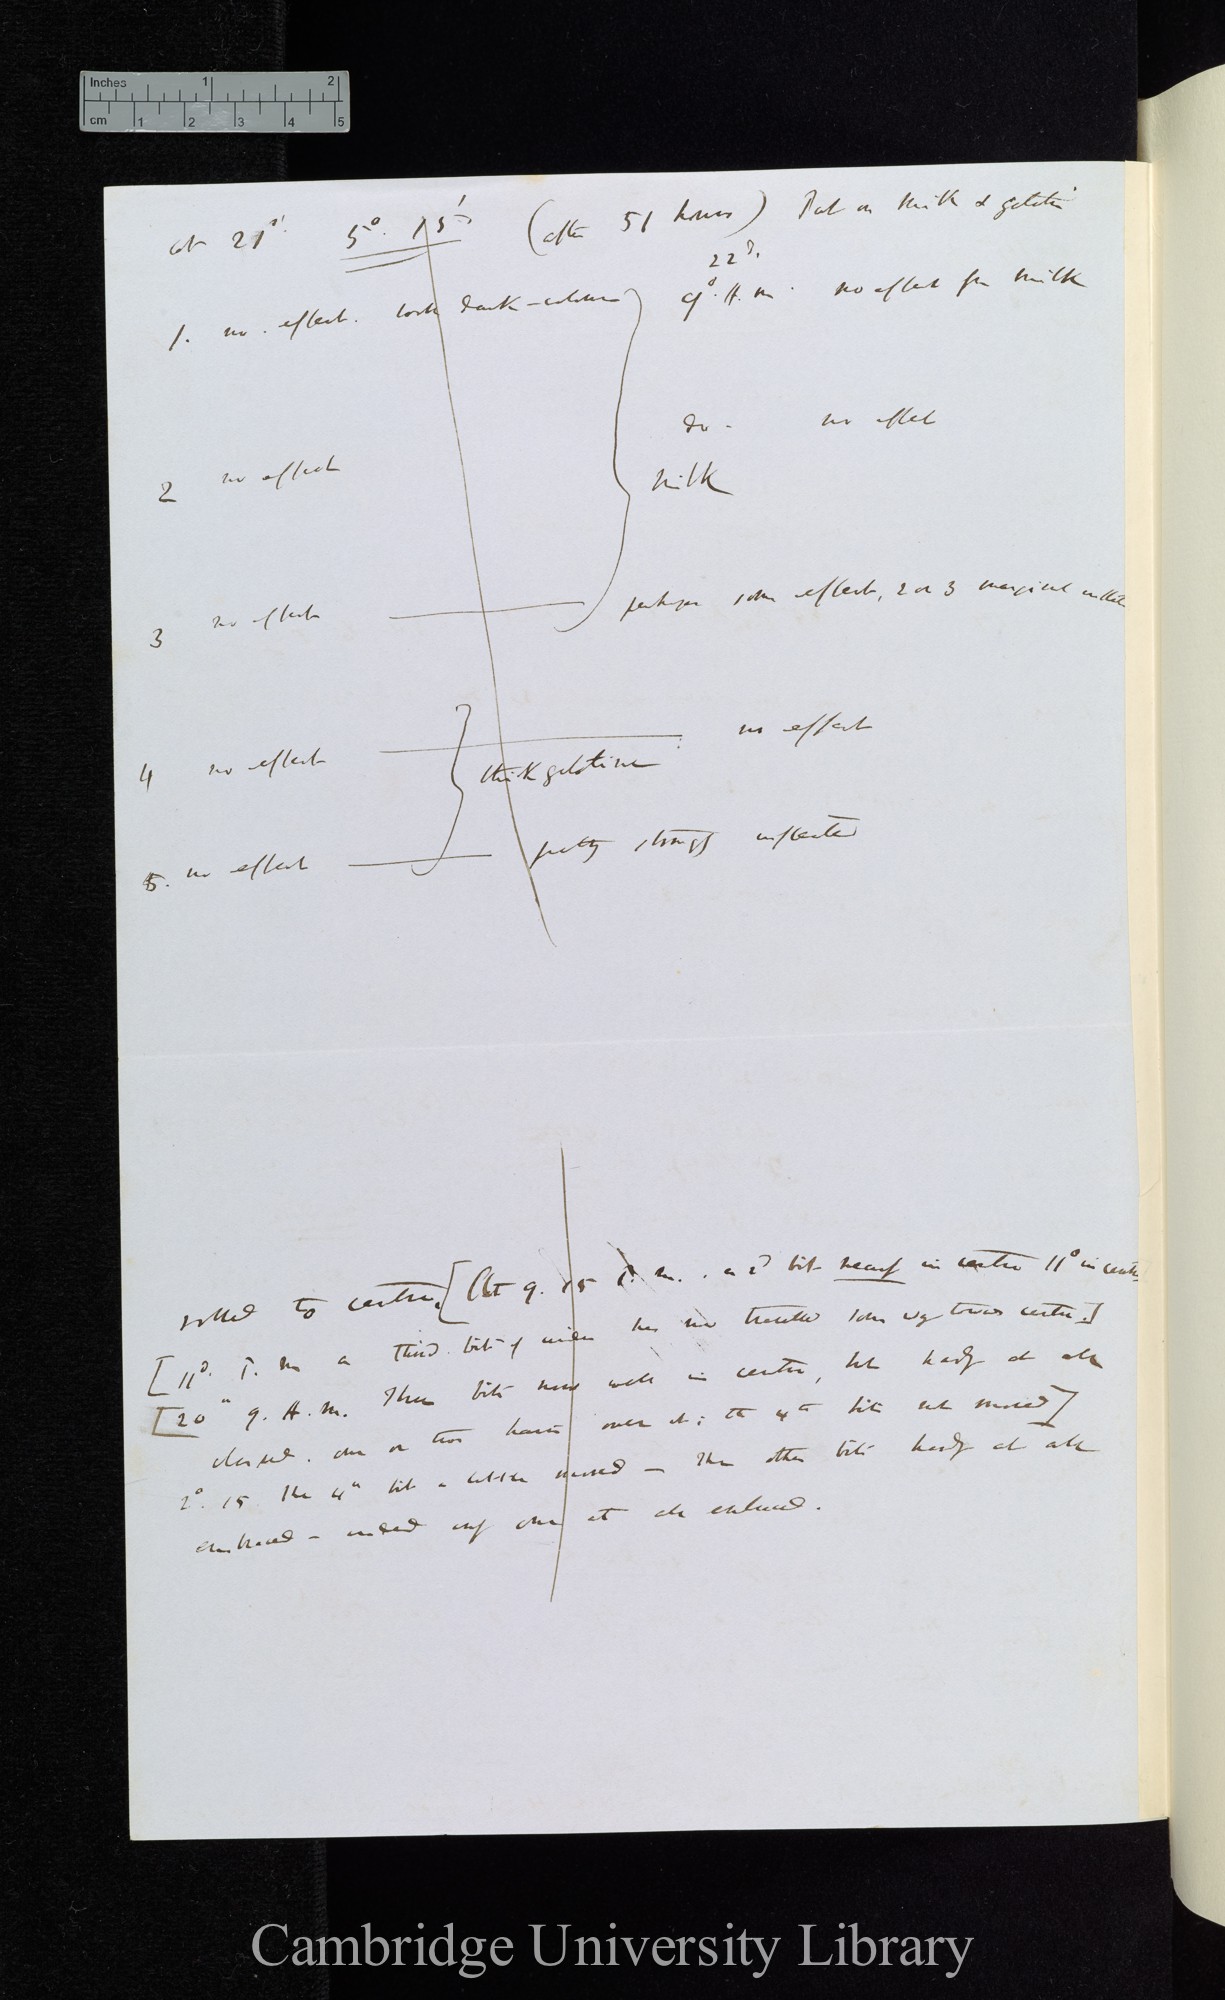 Inches 1 2
cm 1 2 3 4 5
at 21d. 5°. 15' (after 51 hours) Put on milk & gelatin
22d.
1. no. effect. look dark-coloured 9°. A. m. no effect from milk
do. no effect
2 no effect milk
3 no effect perhaps some effect, 2 or 3 marginal inflected
4 no effect no effect
thick gelatine
5. no effect pretty strongly inflected
rolled to centre. [At 9. 15 P. m. a 2d bit nearly in centre 11° in centre
[11°. P. m a third bit of has now travelled some way towards centre.]
[20th 9. A. m. Three bits now well in centre, but hardly at all
closed. one or two hairs over it; the 4th bit not moved]
2°. 15. The 4th bit a little moved — The other bits hardly at all
embraced — indeed only one at all enclosed.
Cambridge University Library